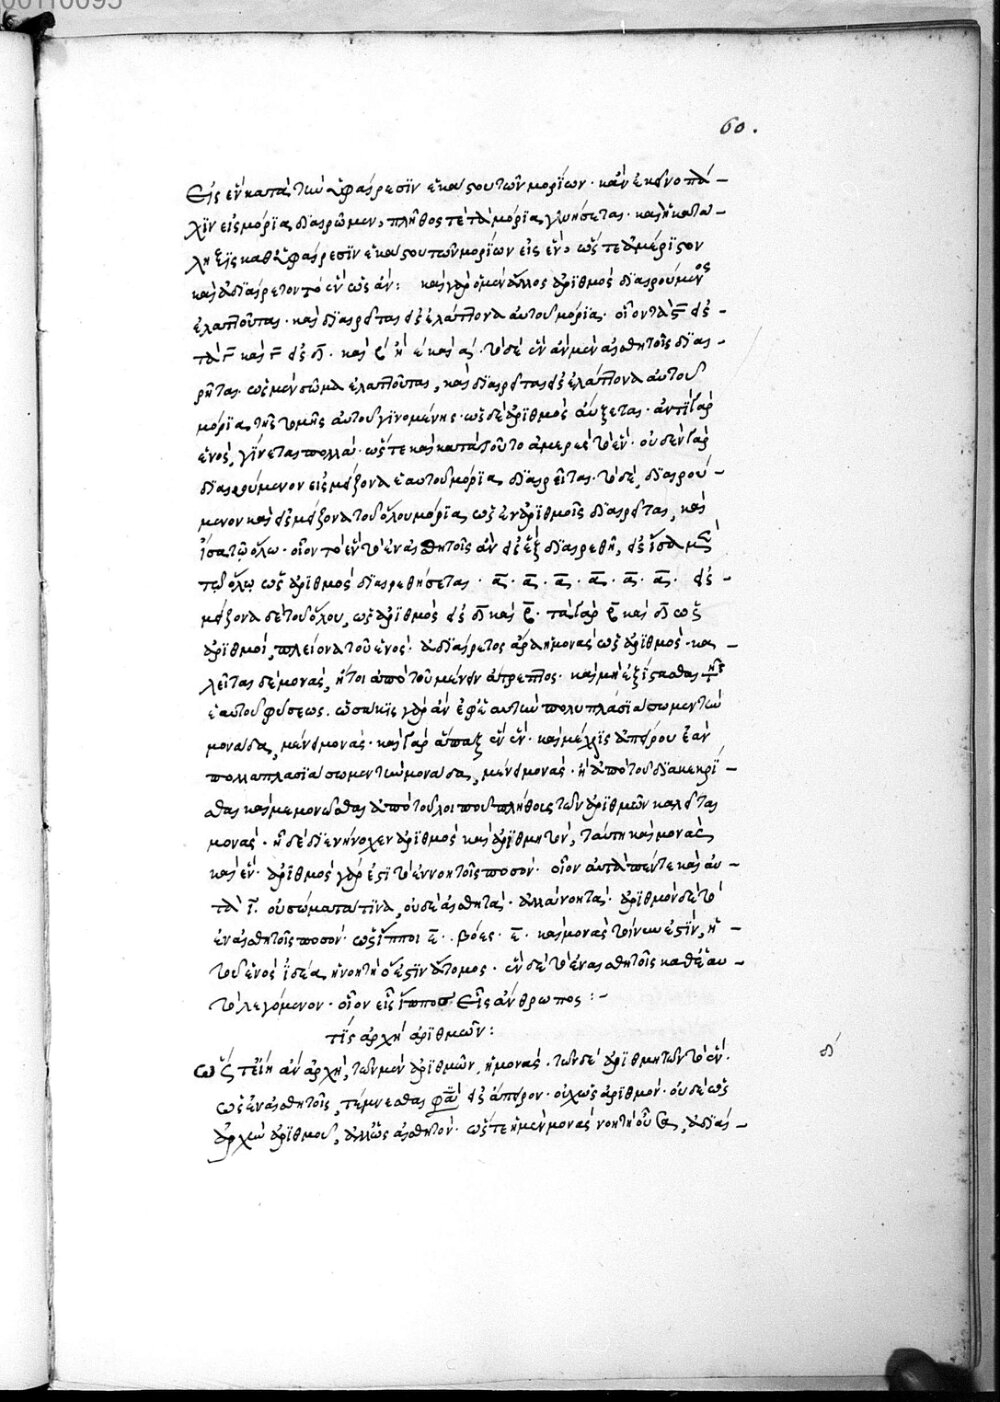 00110095
60.
εἰς ἓν κατὰ τὴν ἀφαίρεσιν ἑκάστου τῶν μορίων· κἂν ἐκεῖνο πά-
λιν εἰς μόρια διαιρῶμεν, πλῆθός τε τὰ μόρια γενήσεται· καὶ ἡ κατά-
ληξις καθ' ἀφαίρεσιν ἑκάστου τῶν μορίων εἰς ἕν, ὥστε ἀμέριστον
καὶ ἀδιαίρετον τὸ ἓν ὡς ἕν: καὶ γὰρ ὁ μὲν ἄλλος ἀριθμὸς διαιρούμενος
ἐλαττοῦται· καὶ διαιρεῖται εἰς ἐλάττονα αὐτοῦ μόρια· οἷον τὰ ϛ εἰς
τὰ γ καὶ γ εἰς δ· καὶ β ἢ ε καὶ α· τὸ δὲ ἓν ἂν μὲν αἰσθητοῖς διαι-
ρῆται, ὡς μὲν σῶμα ἐλαττοῦται, καὶ διαιρεῖται εἰς ἐλάττονα αὐτοῦ
μόρια τῆς τομῆς αὐτοῦ γινομένης· ὡς δὲ ἀριθμὸς αὔξεται· ἀντὶ γὰρ
ἑνὸς, γίνεται πολλά· ὥστε καὶ κατὰ τοῦτο ἀμερὲς τὸ ἕν· οὐδὲν γὰρ
διαιρούμενον εἰς μείζονα ἑαυτοῦ μόρια διαιρεῖται· τὸ δὲ, διαιρού-
μενον καὶ εἰς μείζονα τοῦ ὅλου μόρια ὡς ἐν ἀριθμοῖς διαιρεῖται, καὶ
ἴσα τῷ ὅλῳ· οἷον τὸ ἓν τὸ ἐν αἰσθητοῖς ἂν εἰς ἓξ διαιρεθῇ, εἰς ἴσα μὲν
τῷ ὅλῳ ὡς ἀριθμὸς διαιρεθήσεται· α· α· α· α· α· α· εἰς
μείζονα δὲ τοῦ ὅλου, ὡς ἀριθμὸς εἰς δ καὶ β· τὰ γὰρ β καὶ δ ὡς
ἀριθμοὶ, πλείονα τοῦ ἑνός· ἀδιαίρετος ἄρα ἡ μονὰς ὡς ἀριθμός· κα-
λεῖται δὲ μονὰς, ἤτοι ἀπὸ τοῦ μένειν ἄτρεπτος· καὶ μὴ ἐξίστασθαι τῆς
ἑαυτοῦ φύσεως. ὁσάκις γὰρ ἂν ἐφ' ἑαυτὴν πολυπλασιάσωμεν τὴν
μονάδα, μένει μονάς· καὶ γὰρ ἅπαξ ἓν ἕν· καὶ μέχρις ἀπείρου ἐὰν
πολλαπλασιάσωμεν τὴν μονάδα, μένει μονάς· ἢ ἀπὸ τοῦ διακεκρί-
σθαι καὶ μεμονῶσθαι ἀπὸ τοῦ λοιποῦ πλήθους τῶν ἀριθμῶν καλεῖται
μονάς· ᾗ δὲ διενήνοχεν ἀριθμὸς καὶ ἀριθμητόν, ταύτῃ καὶ μονὰς
καὶ ἕν· ἀριθμὸς γάρ ἐστι τὸ ἐν νοητοῖς ποσόν· οἷον αὐτὰ πέντε καὶ αὐ-
τὰ ι· οὐ σώματά τινα, οὐδὲ αἰσθητά· ἀλλὰ νοητά· ἀριθμὸν δὲ τὸ
ἐν αἰσθητοῖς ποσόν· ὡς ἵπποι ε· βόες· ε· καὶ μονὰς τοίνυν ἐστὶν, ἡ
τοῦ ἑνὸς ἰδέα ἡ νοητὴ ὅ ἐστιν ἄτομος· ἓν δὲ τὸ ἐν αἰσθητοῖς καθ' ἑαυ-
τὸ λεγόμενον· οἷον εἷς ἵππος εἷς ἄνθρωπος:-
τίς ἀρχὴ ἀριθμῶν:
δ
ὥστ' εἴη ἂν ἀρχὴ, τῶν μὲν ἀριθμῶν, ἡ μονάς· τῶν δὲ ἀριθμητῶν τὸ ἕν·
ὡς ἐν αἰσθητοῖς, τέμνεσθαι φασὶ εἰς ἄπειρον· οὐχ ὡς ἀριθμόν· οὐδὲ ὡς
ἀρχὴν ἀριθμοῦ, ἀλλ' ὡς αἰσθητόν· ὥστε ἡ μὲν μονὰς νοητὴ οὖσα, ἀδιαί-